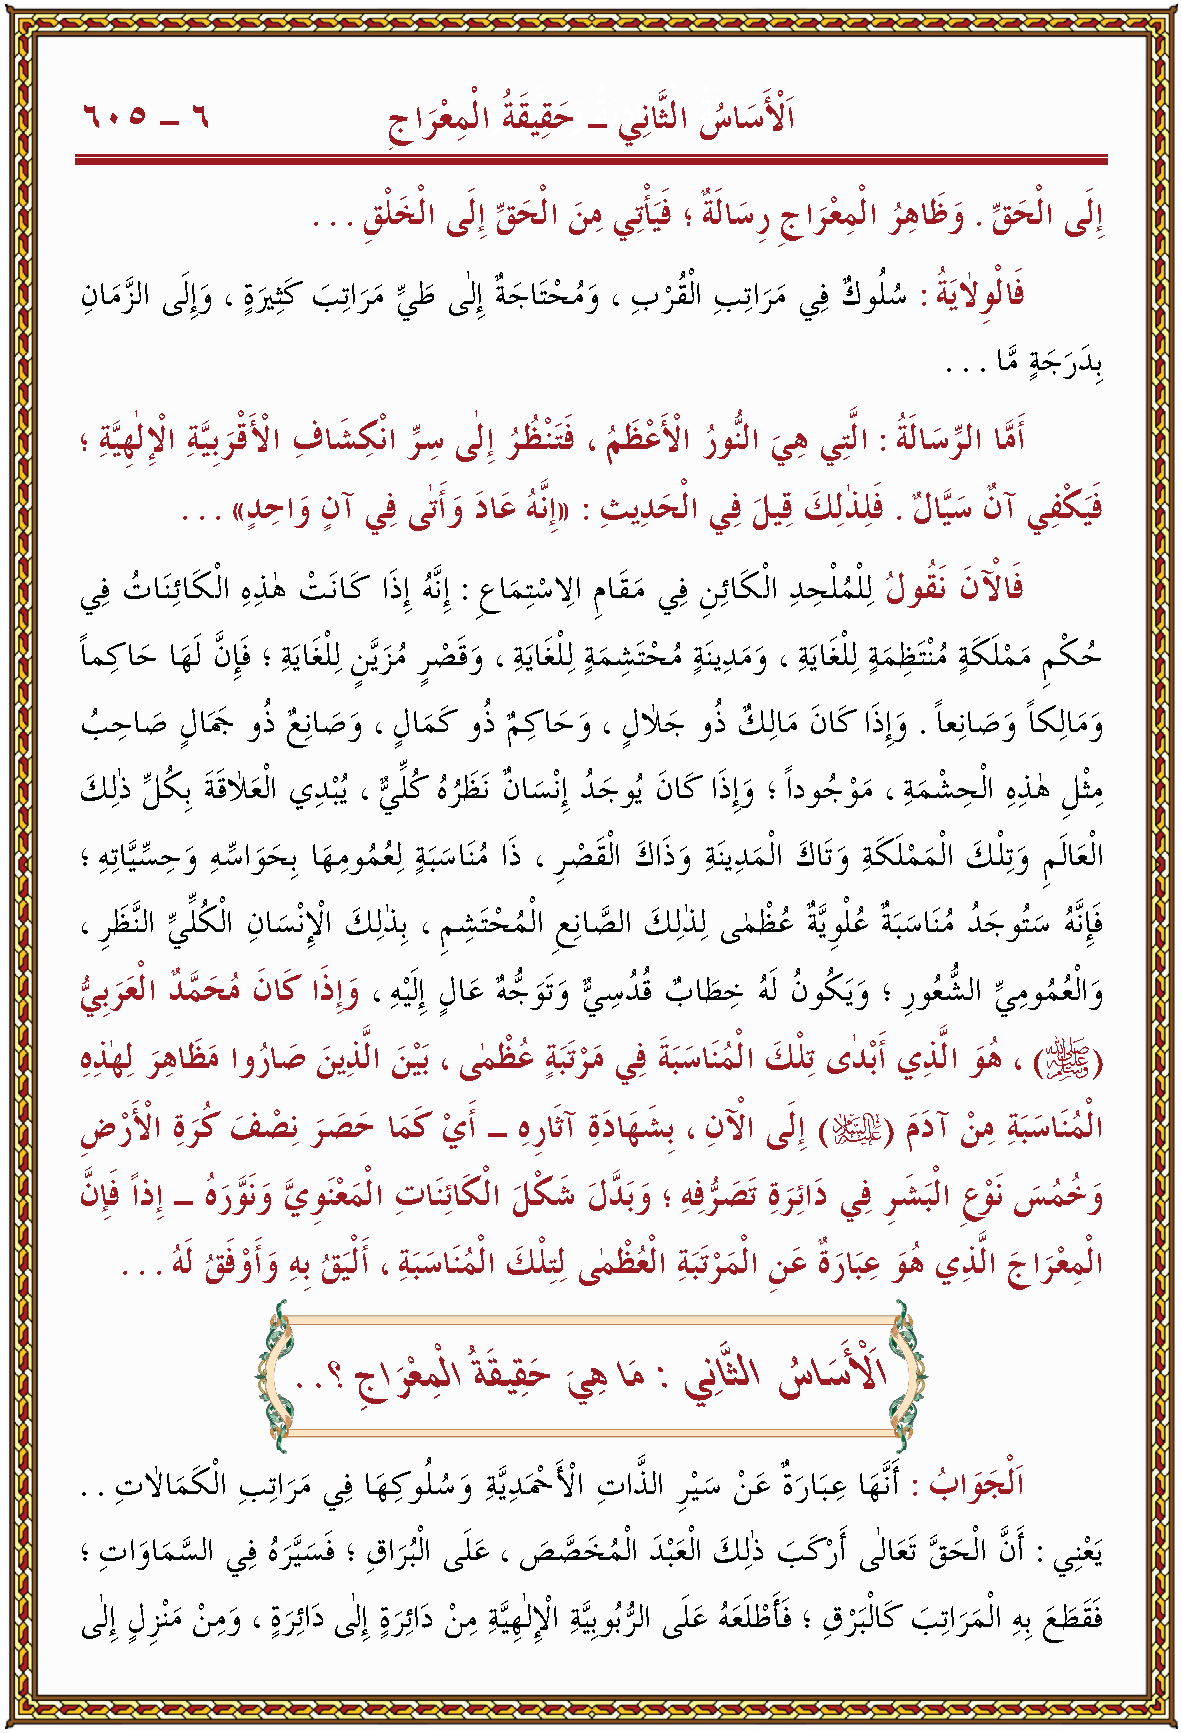 اَلْأَسَاسُ الثَّانِي – حَقِيقَةُ الْمِعْرَاجِ ٦ – ٦٠٥
إِلَى الْحَقِّ . وَظَاهِرُ الْمِعْرَاجِ رِسَالَةٌ ؛ فَيَأْتِي مِنَ الْحَقِّ إِلَى الْخَلْقِ . . .
فَالْوِلاَيَةُ : سُلُوكٌ فِي مَرَاتِبِ الْقُرْبِ ، وَمُحْتَاجَةٌ إِلٰى طَيِّ مَرَاتِبَ كَثِيرَةٍ ، وَإِلَى الزَّمَانِ
بِدَرَجَةٍ مَّا . . .
أَمَّا الرِّسَالَةُ : الَّتِي هِيَ النُّورُ الْأَعْظَمُ ، فَتَنْظُرُ إِلٰى سِرِّ انْكِشَافِ الْأَقْرَبِيَّةِ الْإِلٰهِيَّةِ ؛
فَيَكْفِي آنٌ سَيَّالٌ . فَلِذٰلِكَ قِيلَ فِي الْحَدِيثِ : «إِنَّهُ عَادَ وَأَتٰى فِي آنٍ وَاحِدٍ» . . .
فَالْآنَ نَقُولُ لِلْمُلْحِدِ الْكَائِنِ فِي مَقَامِ الِاسْتِمَاعِ : إِنَّهُ إِذَا كَانَتْ هٰذِهِ الْكَائِنَاتُ فِي
حُكْمِ مَمْلَكَةٍ مُنْتَظِمَةٍ لِلْغَايَةِ ، وَمَدِينَةٍ مُحْتَشِمَةٍ لِلْغَايَةِ ، وَقَصْرٍ مُزَيَّنٍ لِلْغَايَةِ ؛ فَإِنَّ لَهَا حَاكِماً
وَمَالِكاً وَصَانِعاً . وَإِذَا كَانَ مَالِكٌ ذُو جَلاَلٍ ، وَحَاكِمٌ ذُو كَمَالٍ ، وَصَانِعٌ ذُو جَمَالٍ صَاحِبُ
مِثْلِ هٰذِهِ الْحِشْمَةِ ، مَوْجُوداً ؛ وَإِذَا كَانَ يُوجَدُ إِنْسَانٌ نَظَرُهُ كُلِّيٌّ ، يُبْدِي الْعَلاَقَةَ بِكُلِّ ذٰلِكَ
الْعَالَمِ وَتِلْكَ الْمَمْلَكَةِ وَتَاكَ الْمَدِينَةِ وَذَاكَ الْقَصْرِ ، ذَا مُنَاسَبَةٍ لِعُمُومِهَا بِحَوَاسِّهِ وَحِسِّيَّاتِهِ ؛
فَإِنَّهُ سَتُوجَدُ مُنَاسَبَةٌ عُلْوِيَّةٌ عُظْمٰى لِذٰلِكَ الصَّانِعِ الْمُحْتَشِمِ ، بِذٰلِكَ الْإِنْسَانِ الْكُلِّيِّ النَّظَرِ ،
وَالْعُمُومِيِّ الشُّعُورِ ؛ وَيَكُونُ لَهُ خِطَابٌ قُدُسِيٌّ وَتَوَجُّهٌ عَالٍ إِلَيْهِ ، وَإِذَا كَانَ مُحَمَّدٌ الْعَرَبِيُّ
(ﷺ) ، هُوَ الَّذِي أَبْدٰى تِلْكَ الْمُنَاسَبَةَ فِي مَرْتَبَةٍ عُظْمٰى ، بَيْنَ الَّذِينَ صَارُوا مَظَاهِرَ لِهٰذِهِ
الْمُنَاسَبَةِ مِنْ آدَمَ (عَلَيْهِ السَّلَامُ) إِلَى الْآنِ ، بِشَهَادَةِ آثَارِهِ – أَيْ كَمَا حَصَرَ نِصْفَ كُرَةِ الْأَرْضِ
وَخُمُسَ نَوْعِ الْبَشَرِ فِي دَائِرَةِ تَصَرُّفِهِ ؛ وَبَدَّلَ شَكْلَ الْكَائِنَاتِ الْمَعْنَوِيَّ وَنَوَّرَهُ – إِذاً فَإِنَّ
الْمِعْرَاجَ الَّذِي هُوَ عِبَارَةٌ عَنِ الْمَرْتَبَةِ الْعُظْمٰى لِتِلْكَ الْمُنَاسَبَةِ ، أَلْيَقُ بِهِ وَأَوْفَقُ لَهُ . . .
اَلْأَسَاسُ الثَّانِي : مَا هِيَ حَقِيقَةُ الْمِعْرَاجِ ؟ . .
اَلْجَوَابُ : أَنَّهَا عِبَارَةٌ عَنْ سَيْرِ الذَّاتِ الْأَحْمَدِيَّةِ وَسُلُوكِهَا فِي مَرَاتِبِ الْكَمَالاَتِ . .
يَعْنِي : أَنَّ الْحَقَّ تَعَالٰى أَرْكَبَ ذٰلِكَ الْعَبْدَ الْمُخَصَّصَ ، عَلَى الْبُرَاقِ ؛ فَسَيَّرَهُ فِي السَّمَاوَاتِ ؛
فَقَطَعَ بِهِ الْمَرَاتِبَ كَالْبَرْقِ ؛ فَأَطْلَعَهُ عَلَى الرُّبُوبِيَّةِ الْإِلٰهِيَّةِ مِنْ دَائِرَةٍ إِلٰى دَائِرَةٍ ، وَمِنْ مَنْزِلٍ إِلٰى